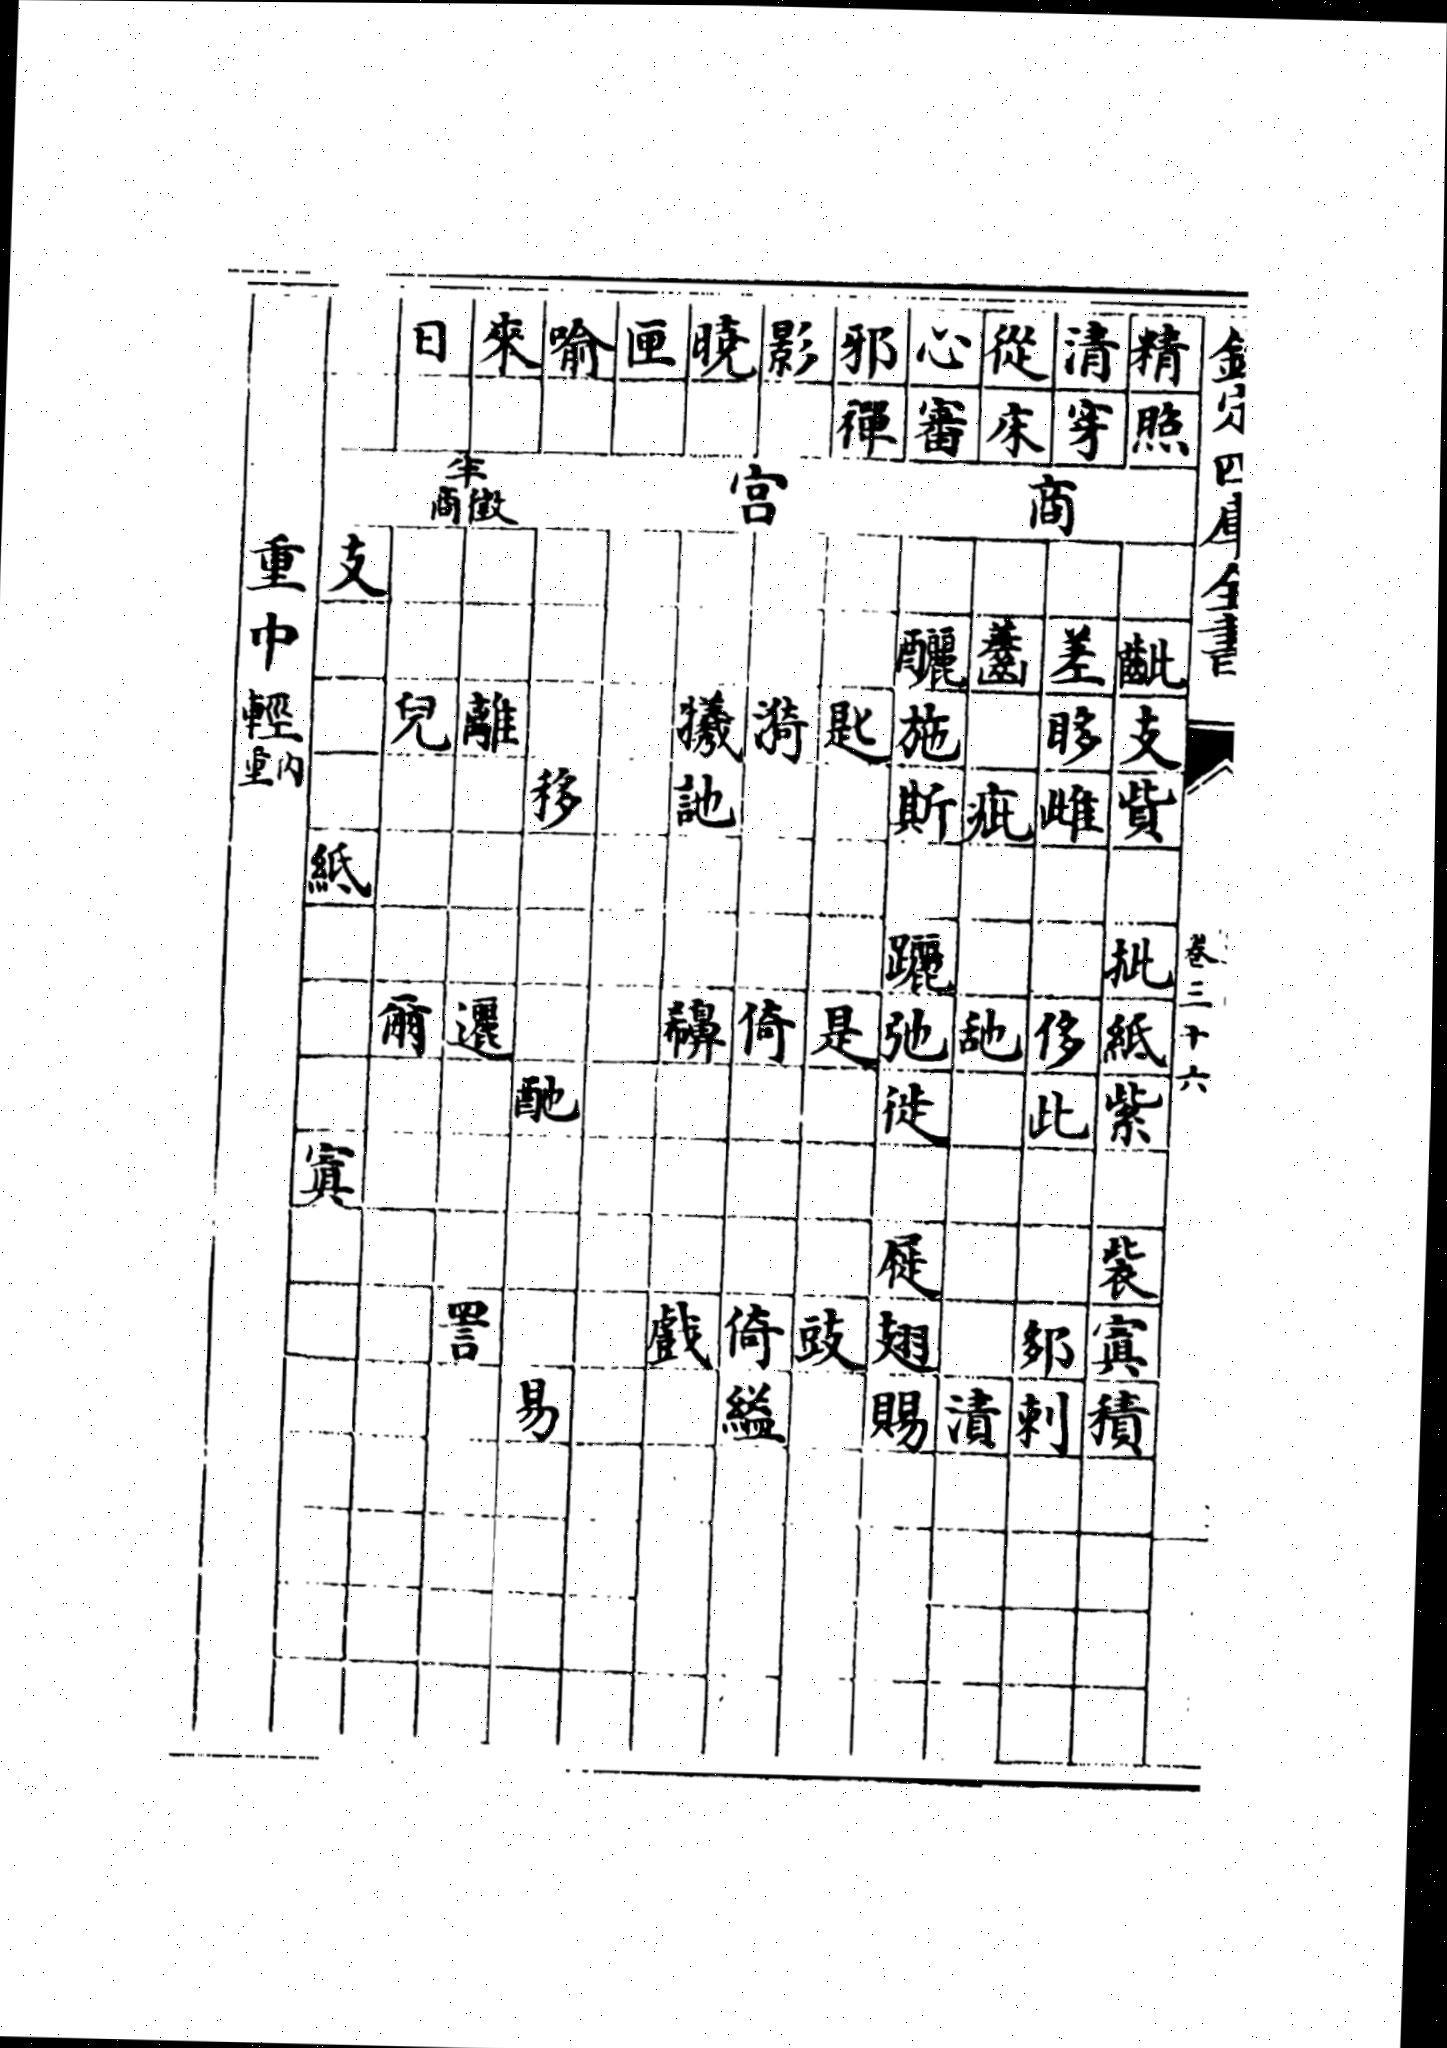 欽定四庫全書
卷三十六
精照齜支貲批紙紫裝寘積
清穿差眵雌侈此刺
從床疵漬
心審釃施斯躧弛徙屣翅賜
邪禪匙是豉
商
影漪倚倚縊
曉犧訑戲
匣
喻移酏易
宮
來離邐詈
日兒爾
半徵商
支紙寘
重中輕內重